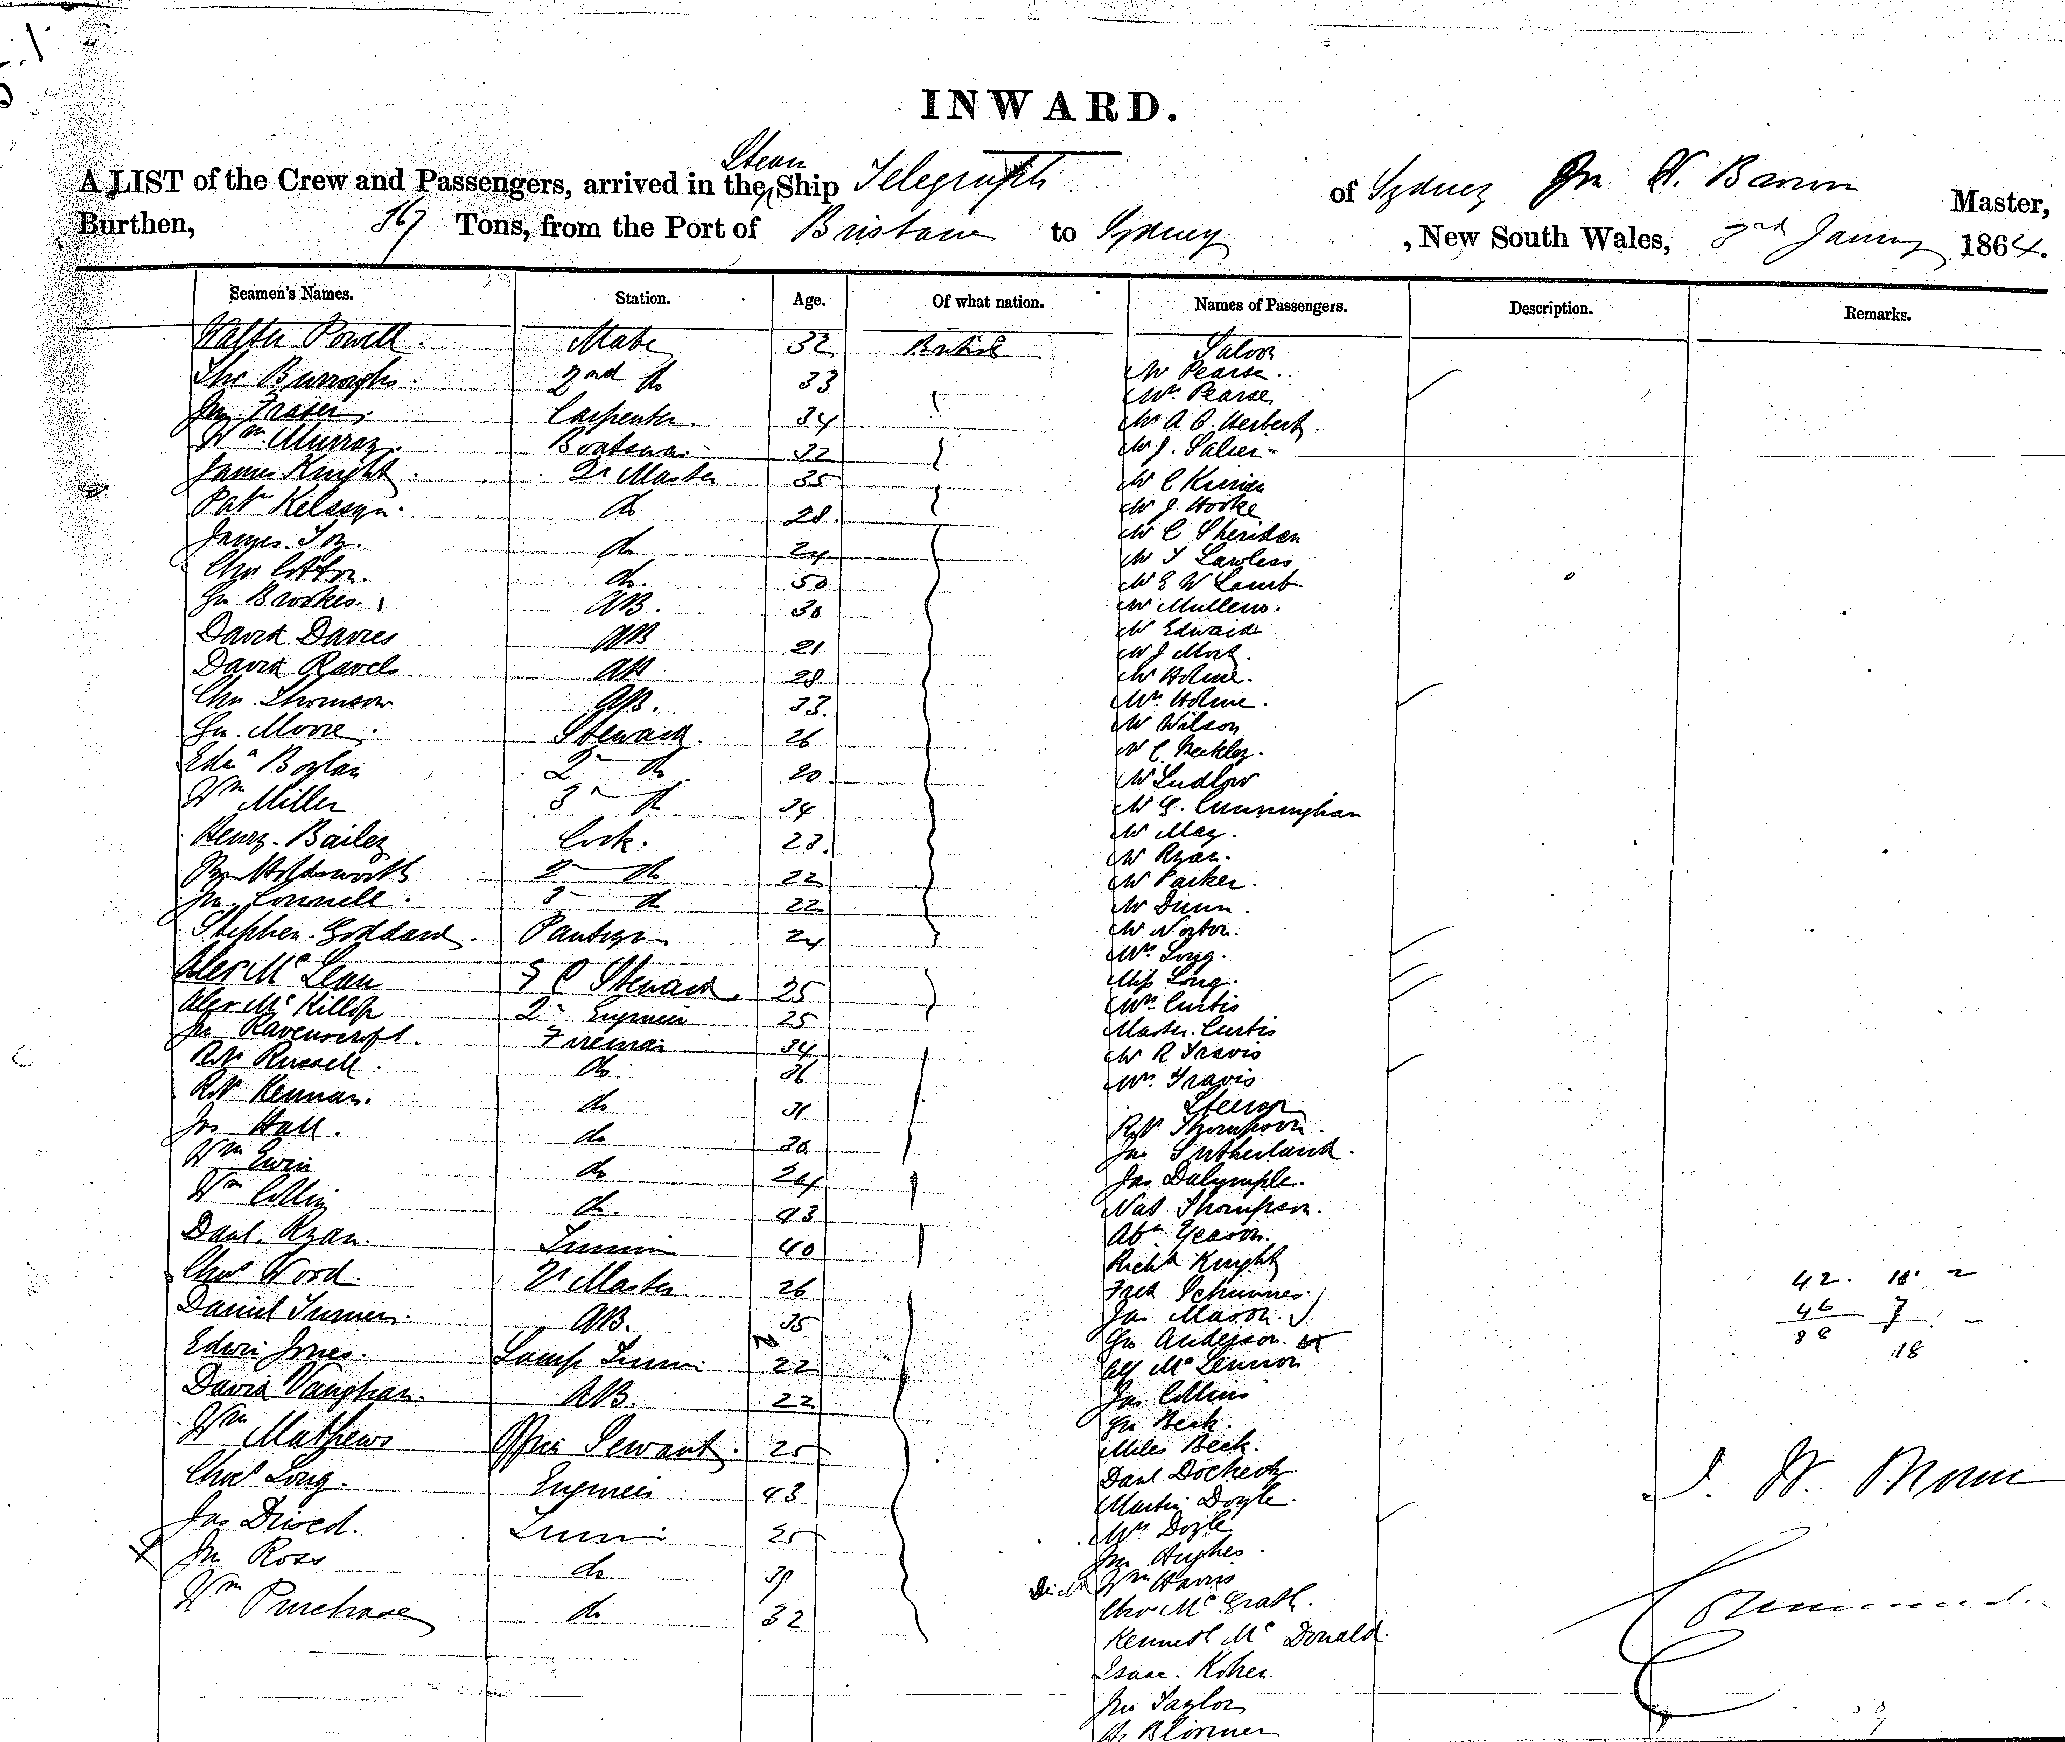 INWARD.
A LIST of the Crew and Passengers, arrived in the Steam Ship Telegraph of Sydney Jn W. Brown Master,
Burthen, 367 Tons, from the Port of Brisbane to Sydney, New South Wales, 3rd January 1864.
Seamen's Names. Station. Age. Of what nation. Names of Passengers. Description. Remarks.
Walter Powell. Mate 32 British Saloon
Mr Pearse.
Tho Burroughs. 2nd do 33
Mrs Pearse
Jn Fraser. Carpenter. 34 Mr A. O. Herbert.
Wm Murray. Boatswain 32 Mr J. Salier
James Knight. Qr Master 35 Mr C
Pat Kilsayn. do 28. Mr J. Hooke
Mr C Sheridan
James do 24 Mr T Lawless
Chs Cotton. do. 50 Mr E W Lamb
Jn Brookes. AB. 30 Mr Mullens.
David Davies AB 21 Mr Edwards
Mr J Mort.
David AB 28 Mr Holme.
Chs Thomson AB. 33. Mrs Holme.
Jn Moore. Steward. 26 Mr Wilson
Mr C.
Edwd Boylan 2nd do 20 Mr Ludlow
Wm Miller 3rd do 34 Mr G. Cunningham
Henry Bailey Cook. 23. Mr May.
Mr Ryan.
Holdsworth 2 do 22 Mr Parker.
Jn Connell. 3 do 22 Mr Dunn.
Stephen Goddard. Pantryman 24 Mr Norton.
Mrs Long.
Alex Mc Lean S C Steward. 25 Miss Long.
Alex Mc Killop 2nd Engineer 25 Mrs Curtis
Jn Ravenscroft. Fireman 34 Master Curtis
Robt Russell. do 36 Mr R Travis
Mrs Travis
Robt Keenan. do 31 Steerage
Jas Hall. do 30 Robt Thompson.
Jas Sutherland.
Wm Ewin do 24 Jas Dalrymple.
Wm Collin do. 43 Nat Thompson.
Danl. Ryan. Trimmer 40 Abm Yearon.
Richd Knight
Chas Wood. Qr Master 26 Fred 42. 18 2
Daniel Turner. AB. 35 Jas Mason. 46 7
Jn Anderson 88 18
Edwin Jones. Lamp Trimmer 22 Mc Lennon
David Vaughan. AB. 22 Jas Collins
Jn Beck.
Wm Mathews Officers Servant. 25 Miles Beck.
Danl Docherty
Chas Long. Engineer 43 Martin Doyle. J. W. Brown
Jas Trimmer 25 Mrs Doyle
Jn Ross do 39 Jn Hughes.
Wm Harris
Wm Purchase do 32 Chs Mc Grath.
Kenneth Mc Donald.
Isaac
Jno Taylor